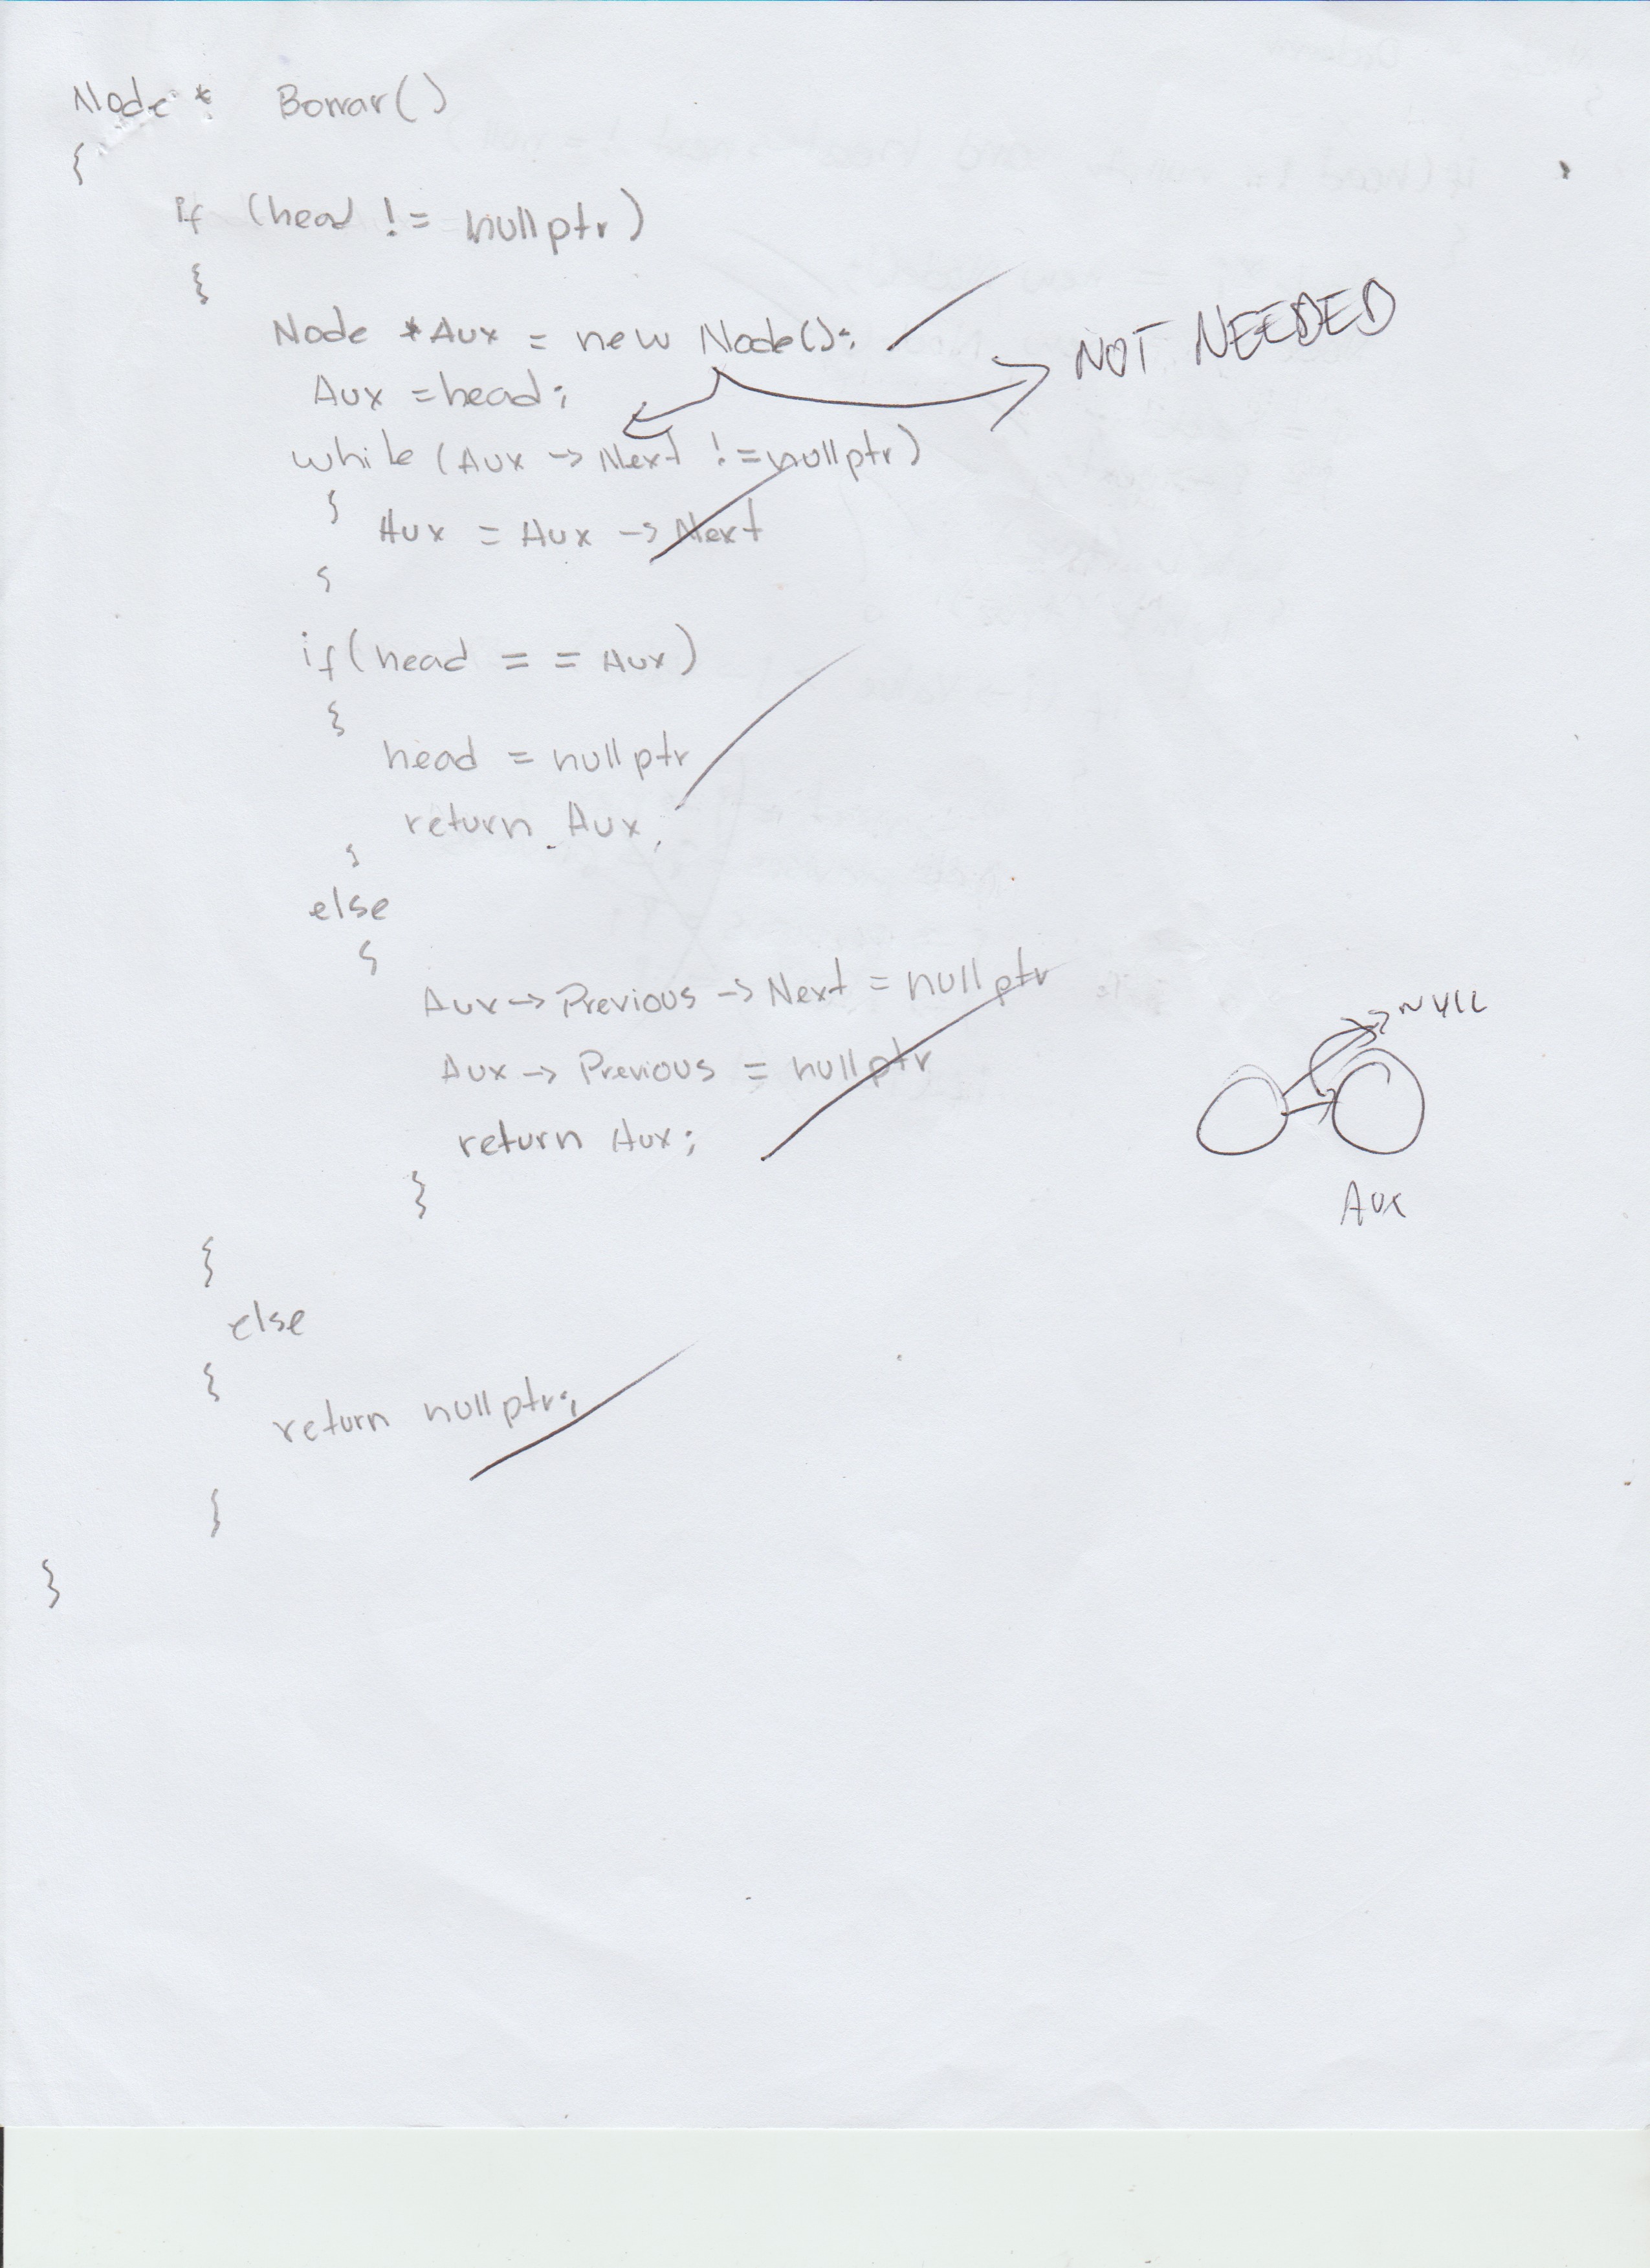 Node * Borrar()
{
if (head != nullptr)
{
Node *Aux = new Node();
NOT NEEDED
Aux = head;
while (Aux -> Next != nullptr)
{
Aux = Aux -> Next
}
if (head == Aux)
{
head = nullptr
return Aux;
}
else
{
Aux -> Previous -> Next = nullptr
Aux -> Previous = nullptr
return Aux;
}
NULL
Aux
}
else
{
return nullptr;
}
}